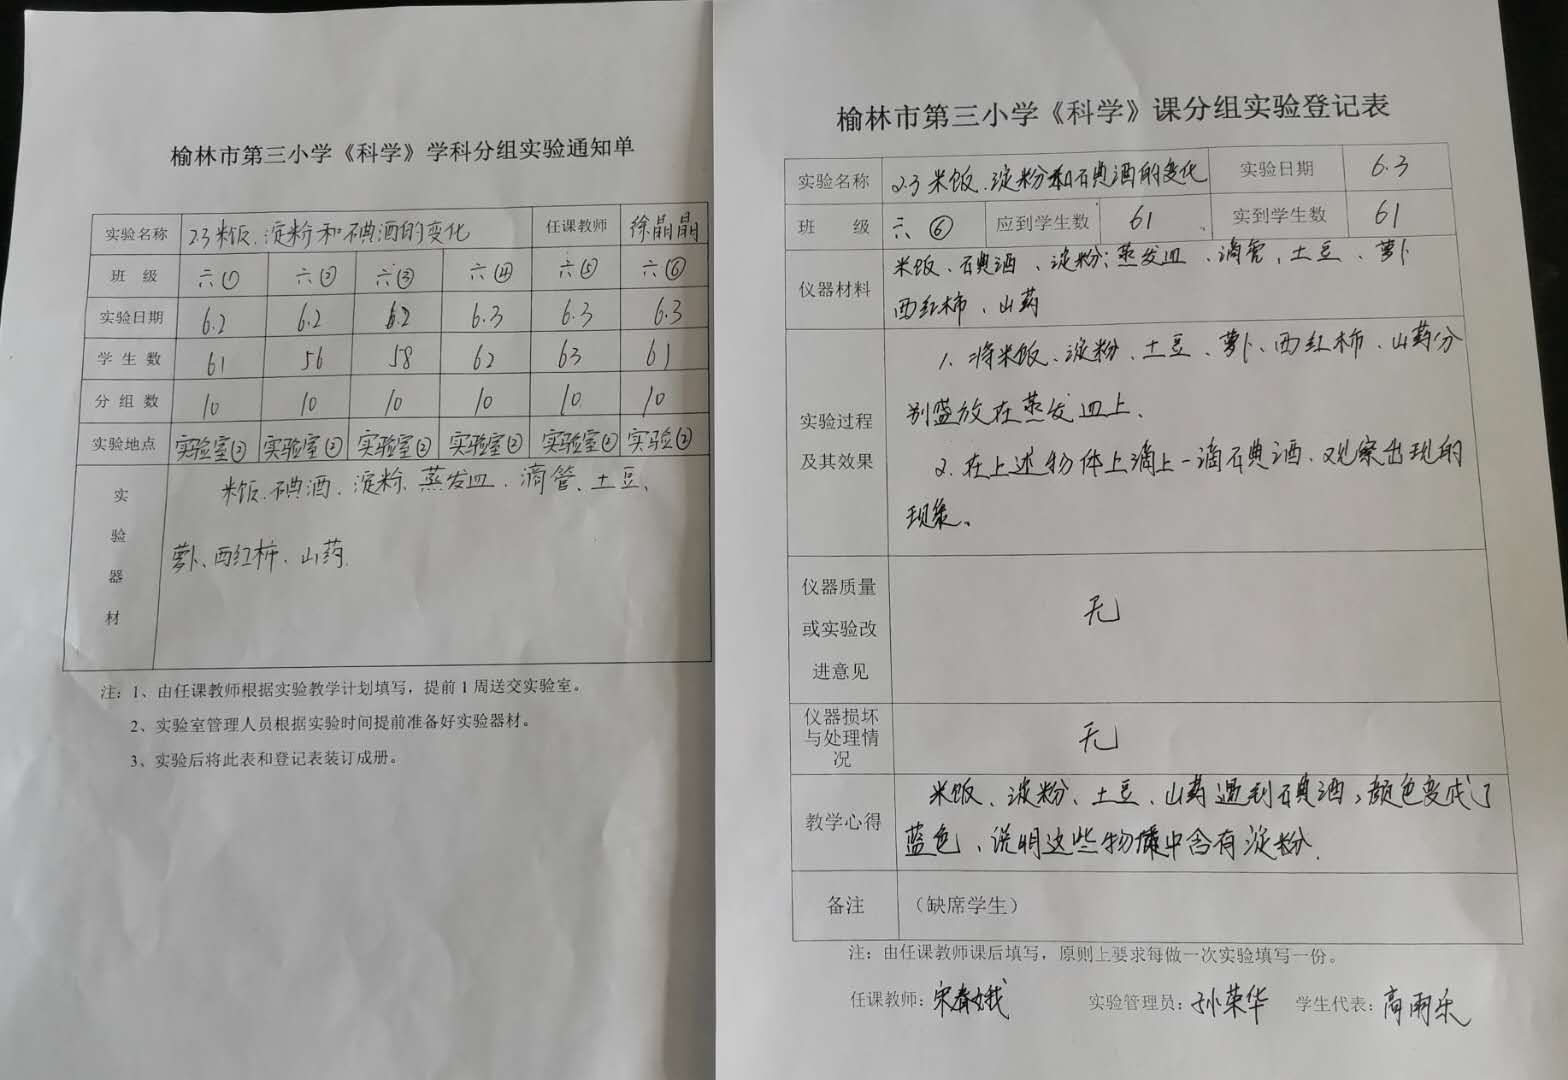 榆林市第三小学《科学》学科分组实验通知单
实验名称 2.3米饭、淀粉和碘酒的变化 任课教师 徐晶晶
班 级 六① 六② 六③ 六④ 六⑤ 六⑥
实验日期 6.2 6.2 6.2 6.3 6.3 6.3
学 生 数 61 56 58 62 63 61
分 组 数 10 10 10 10 10 10
实验地点 实验室② 实验室② 实验室② 实验室② 实验室② 实验②
实验器材
米饭、碘酒、淀粉、蒸发皿、滴管、土豆、
萝卜、西红柿、山药.
注：1、由任课教师根据实验教学计划填写，提前1周送交实验室。
2、实验室管理人员根据实验时间提前准备好实验器材。
3、实验后将此表和登记表装订成册。
榆林市第三小学《科学》课分组实验登记表
实验名称 2.3米饭、淀粉和碘酒的变化 实验日期 6.3
班 级 六⑥ 应到学生数 61 实到学生数 61
仪器材料
米饭、碘酒、淀粉、蒸发皿、滴管、土豆、萝卜
西红柿、山药
实验过程
及其效果
1、将米饭、淀粉、土豆、萝卜、西红柿、山药分
别盛放在蒸发皿上、
2、在上述物体上滴上一滴碘酒、观察出现的
现象、
仪器质量
或实验改
进意见
无
仪器损坏
与处理情
况
无
教学心得
米饭、淀粉、土豆、山药遇到碘酒，颜色变成了
蓝色、说明这些物体中含有淀粉.
备注 （缺席学生）
注：由任课教师课后填写，原则上要求每做一次实验填写一份。
任课教师：宋春娥 实验管理员：孙荣华 学生代表：高雨乐